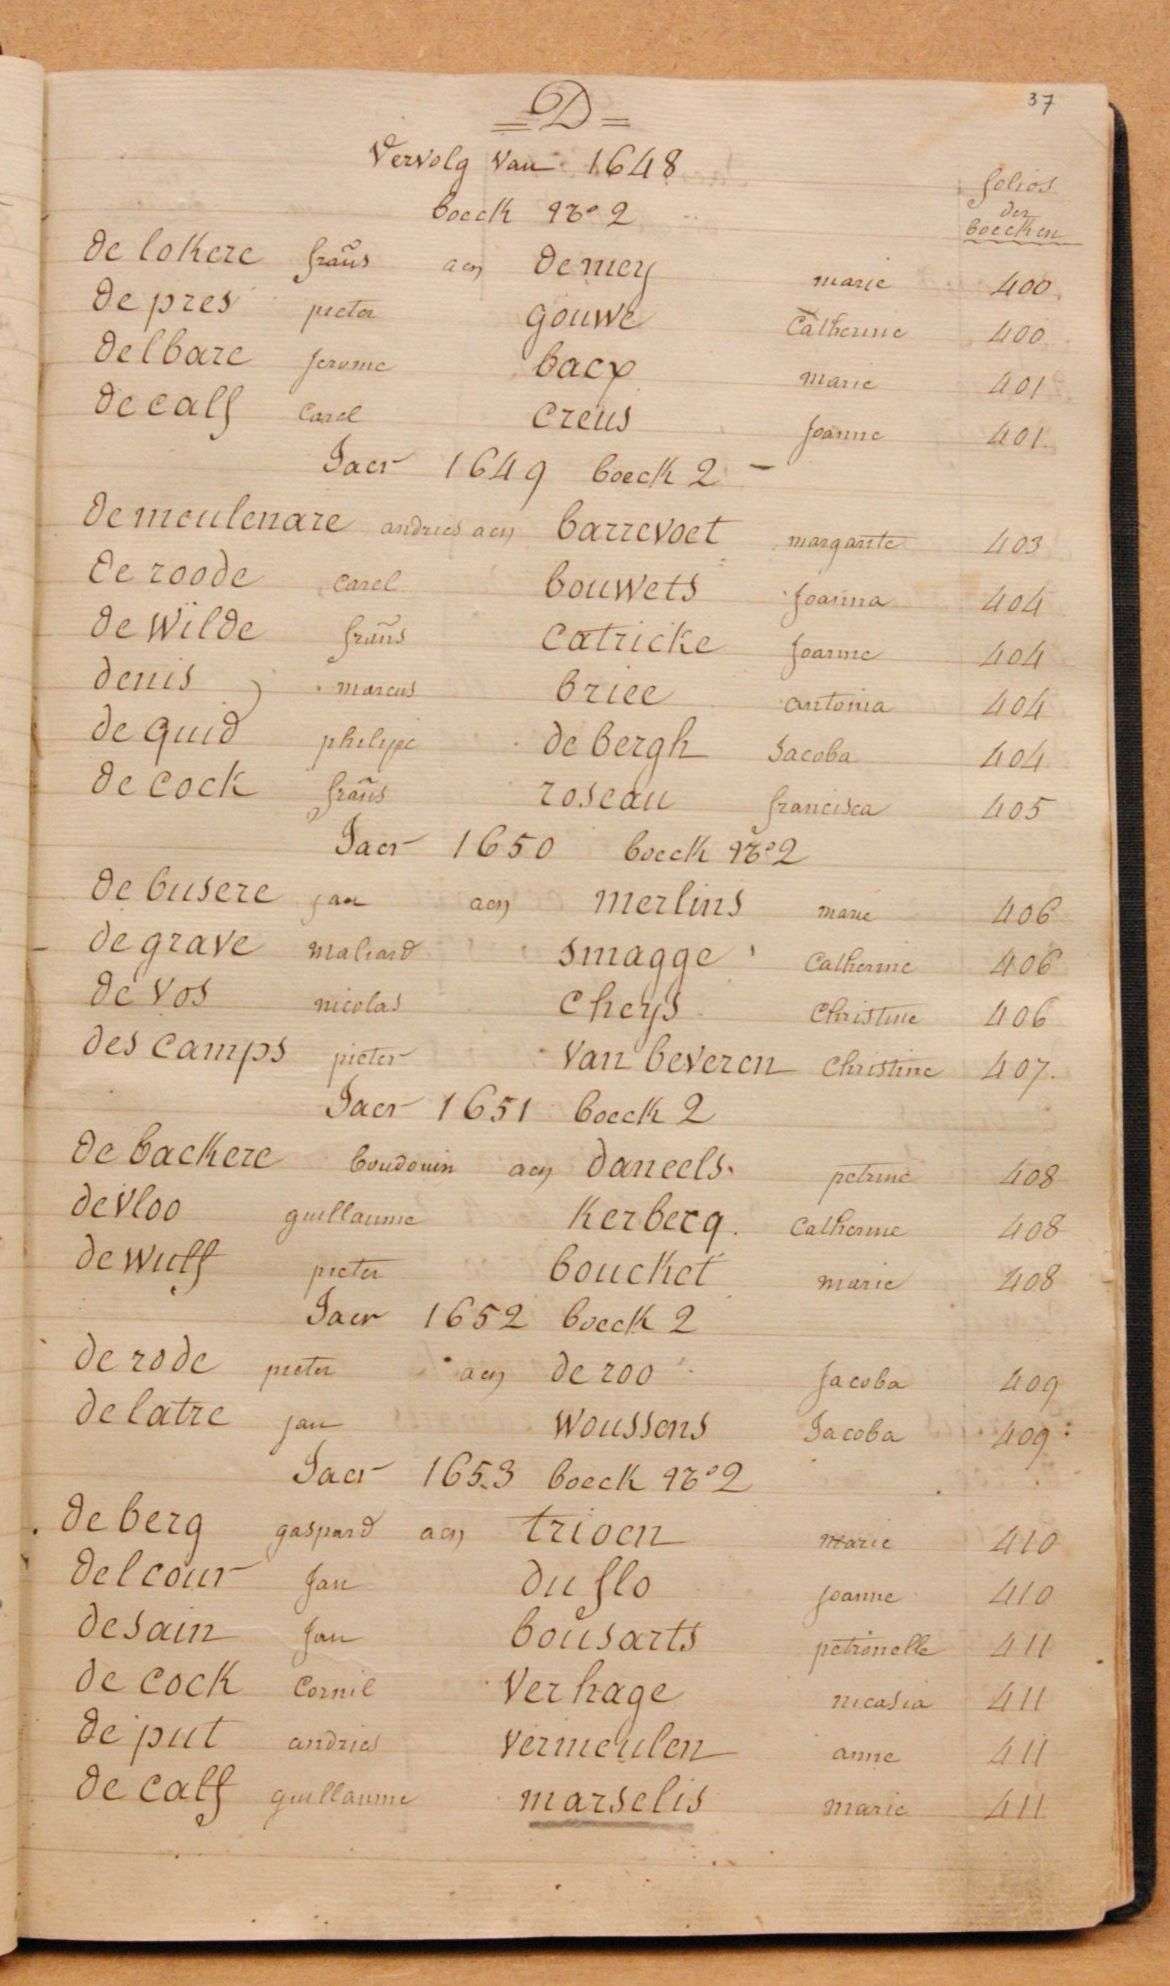 37
= D =
Vervolg van 1648
boeck No 2
folios
der
boecken
de lokere frans aen de mey marie 400
de pres pieter gouwe Catherine 400
delbare Jerome bacx marie 401
de calf Carel creus Joanne 401
Jaer 1649 boeck 2 -
de meulenare andries aen barrevoet margarite 403
de roode carel bouwets Joanna 404
de wilde frans catricke Joanne 404
denis marcus briee antonia 404
de quid philippe de bergh Jacoba 404
de cock frans roseau francisca 405
Jaer 1650 boeck No 2
de busere jan aen merlins marie 406
de grave maliard smagge Catherine 406
de vos nicolas cheys Christine 406
des camps pieter van beveren Christine 407
Jaer 1651 boeck 2
de backere boudouin aen daneels petrine 408
de vloo guillaume kerberq Catherine 408
de wulf pieter boucket marie 408
Jaer 1652 boeck 2
de rode pieter aen de roo Jacoba 409
delatre jan woussens Jacoba 409
Jaer 1653 boeck No 2
de berg gaspard aen trioen marie 410
delcour Jan du flo Joanne 410
desain Jan bousarts petronelle 411
de cock Cornil verhage nicasia 411
de put andries vermeulen anne 411
de calf guillaume marselis marie 411